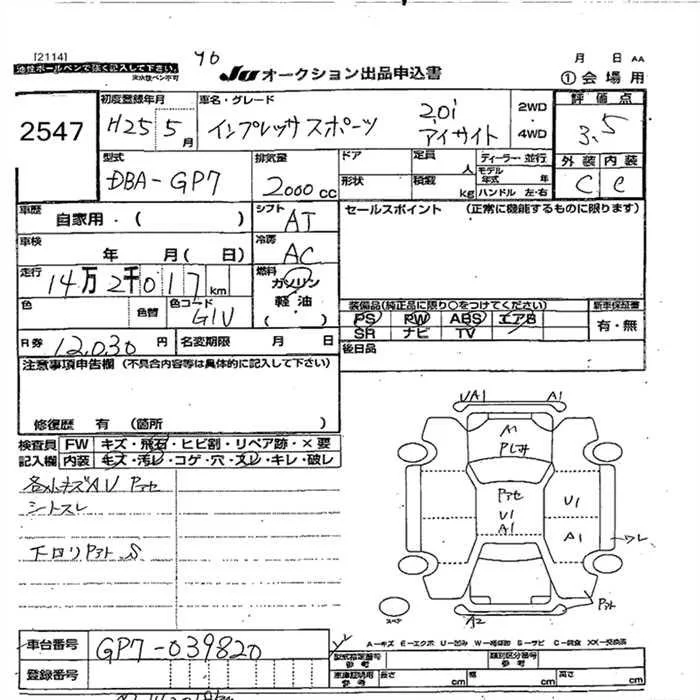 [2114]
油性ボールペンで強く記入して下さい。
水性ペン不可
40
JU オークション出品申込書
月 日 AA
①会場用
2547
初度登録年月
H25 5月
車名・グレード
インプレッサスポーツ 2.0i アイサイト
2WD
4WD
評価点
3.5
型式
DBA-GP7
排気量
2000cc
ドア
形状
定員
人
積載
kg
ディーラー・並行
モデル年式 年
ハンドル 左・右
外装 内装
C C
車歴
自家用・( )
シフト
AT
セールスポイント (正常に機能するものに限ります)
車検
年 月( 日)
冷房
AC
走行
14万2千017km
燃料
ガソリン
軽油
( )
色
色替
色コード
G1U
装備品(純正品に限り○をつけてください)
新車保証書
PS PW ABS エアB
SR ナビ TV
有・無
R券
12,030円
名変期限 月 日
後日品
注意事項申告欄 (不具合内容等は具体的に記入して下さい)
修復歴 有 (箇所 )
検査員記入欄
FW キズ・飛石・ヒビ割・リペア跡・×要
内装 キズ・汚レ・コゲ・穴・スレ・キレ・破レ
各小キズAU
シートスレ
下回り S
UA1 A1
A1
U1
A1
U1
A1
ワレ
A2
スペア
車台番号
GP7-039820
登録番号
A-キズ E-エクボ U-凹み W-補修跡 S-サビ C-腐食 XX-交換済
型式指定番号
参考
類別区分番号
参考
車庫証明用
参考
長さ cm 幅 cm 高さ cm